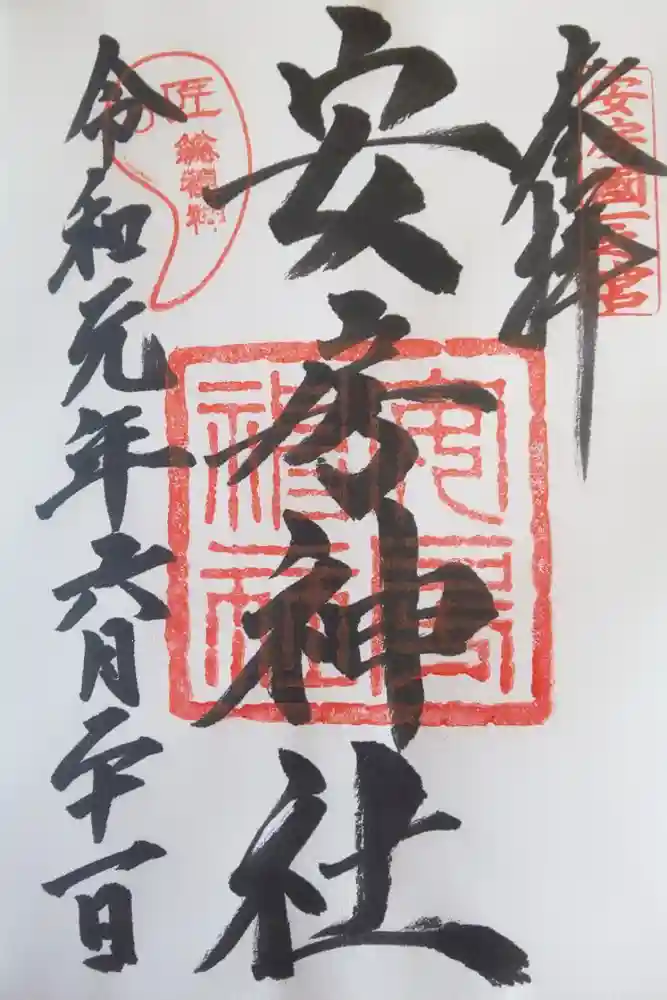 奉拝
安房國一之宮
安房神社
安房
神社
令和元年六月二十一日
匠
総祖神